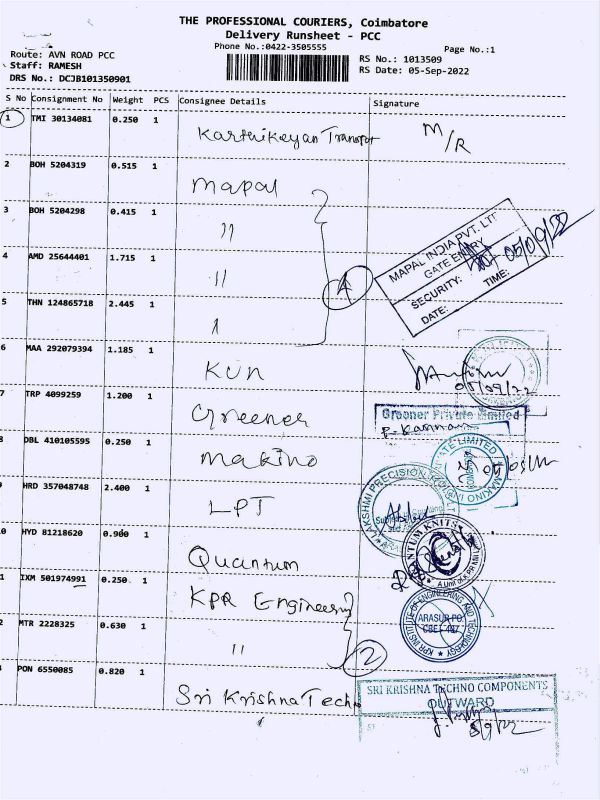 THE PROFESSIONAL COURIERS, Coimbatore
Delivery Runsheet - PCC
Phone No.:0422-3505555
Page No.:1
Route: AVN ROAD PCC
Staff: RAMESH
DRS No.: DCJB101350901
RS No.: 1013509
RS Date: 05-Sep-2022
S No Consignment No Weight PCS Consignee Details Signature
1 TMI 30134081 0.250 1 Karthikeyan Transport M/R
2 BOH 5204319 0.515 1 Mapal
3 BOH 5204298 0.415 1 11
4 AMD 25644401 1.715 1 11
4
MAPAL INDIA PVT. LTD
GATE ENTRY
SECURITY: 05/09/22
DATE: TIME:
5 THN 124865718 2.445 1 1
6 MAA 292079394 1.185 1 KUN
05/09/22
7 TRP 4099259 1.200 1 Greener
Grooner Private Limited
P. Kannan
8 DBL 410105595 0.250 1 Makino
9 HRD 357048748 2.400 1 LPT
LAKSHMI PRECISION
0 HYD 81218620 0.900 1 Quantum
QUANTUM KNITS
1 IXM 501974991 0.250 1 KPR Engineering
KPR INSTITUTE OF ENGINEERING AND TECHNOLOGY
ARASUR PO.
2 MTR 2228325 0.630 1 11
2
PON 6550085 0.820 1 Sri Krishna Techno
SRI KRISHNA TECHNO COMPONENTS
OUTWARD
5/9/22